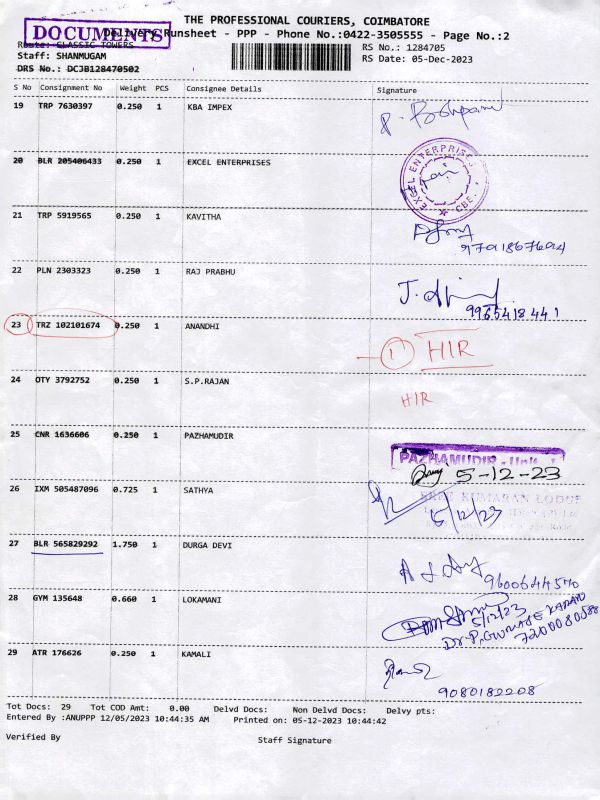 THE PROFESSIONAL COURIERS, COIMBATORE
DOCUMENTS
Delivery Runsheet - PPP - Phone No.:0422-3505555 - Page No.:2
Route: CLASSIC TOWERS
RS No.: 1284705
Staff: SHANMUGAM
RS Date: 05-Dec-2023
DRS No.: DCJB128470502
S No Consignment No Weight PCS Consignee Details Signature
19 TRP 7630397 0.250 1 KBA IMPEX
20 BLR 205406433 0.250 1 EXCEL ENTERPRISES
EXCEL ENTERPRISES
CBE.
21 TRP 5919565 0.250 1 KAVITHA
22 PLN 2303323 0.250 1 RAJ PRABHU
9965418441
23 TRZ 102101674 0.250 1 ANANDHI
1 HIR
24 OTY 3792752 0.250 1 S.P.RAJAN
HIR
25 CNR 1636606 0.250 1 PAZHAMUDIR
PAZHAMUDIR - Unit
5-12-23
26 IXM 505487096 0.725 1 SATHYA
SREE KUMARAN LODGE
5/12/23
27 BLR 565829292 1.750 1 DURGA DEVI
28 GYM 135648 0.660 1 LOKAMANI
5/12/23
7200080588
29 ATR 176626 0.250 1 KAMALI
9080182208
Tot Docs: 29 Tot COD Amt: 0.00 Delvd Docs: Non Delvd Docs: Delvy pts:
Entered By :ANUPPP 12/05/2023 10:44:35 AM Printed on: 05-12-2023 10:44:42
Verified By
Staff Signature